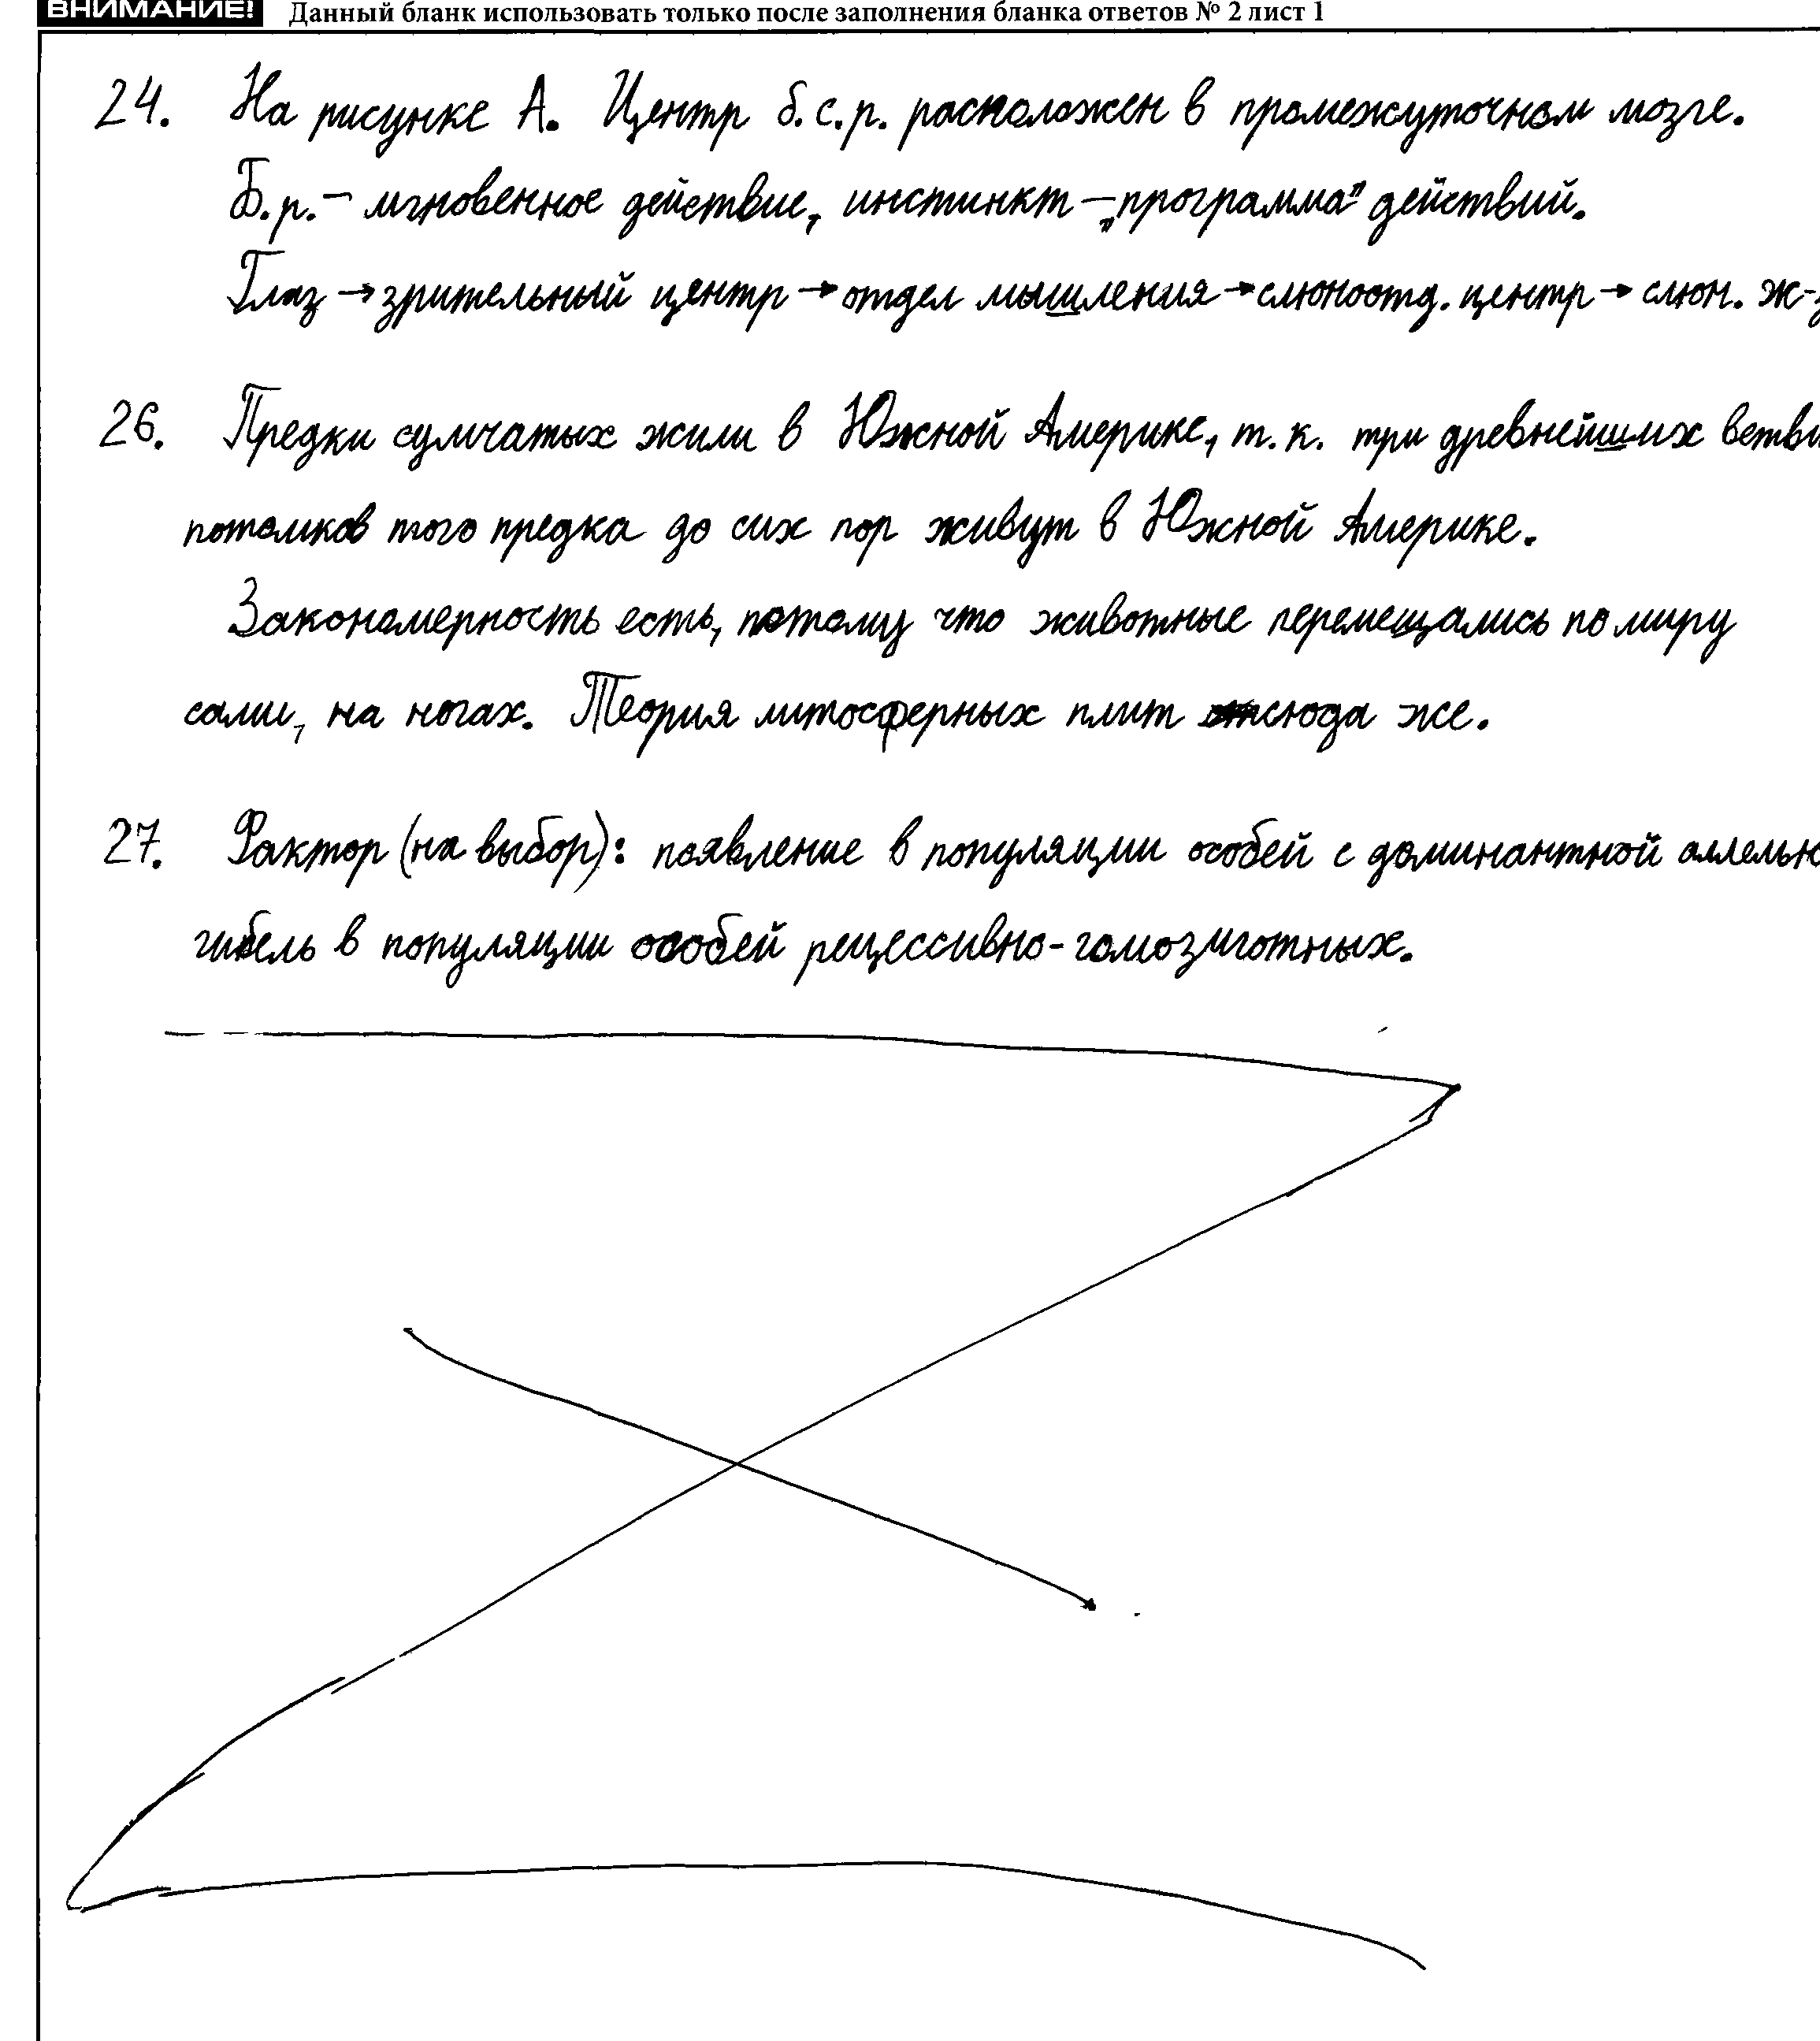 ВНИМАНИЕ! Данный бланк использовать только после заполнения бланка ответов № 2 лист 1
24. На рисунке А. Центр б.с.р. расположен в промежуточном мозге.
Б.р. – мгновенное действие, инстинкт – „программа" действий.
Глаз → зрительный центр → отдел мышления → слюноотд. центр → слюн. ж-
26. Предки сумчатых жили в Южной Америке, т.к. три древнейших ветви
потомков того предка до сих пор живут в Южной Америке.
Закономерность есть, потому что животные перемещались по миру
сами, на ногах. Теория литосферных плит сюда же.
27. Фактор (на выбор): появление в популяции особей с доминантной аллелью
гибель в популяции особей рецессивно-гомозиготных.